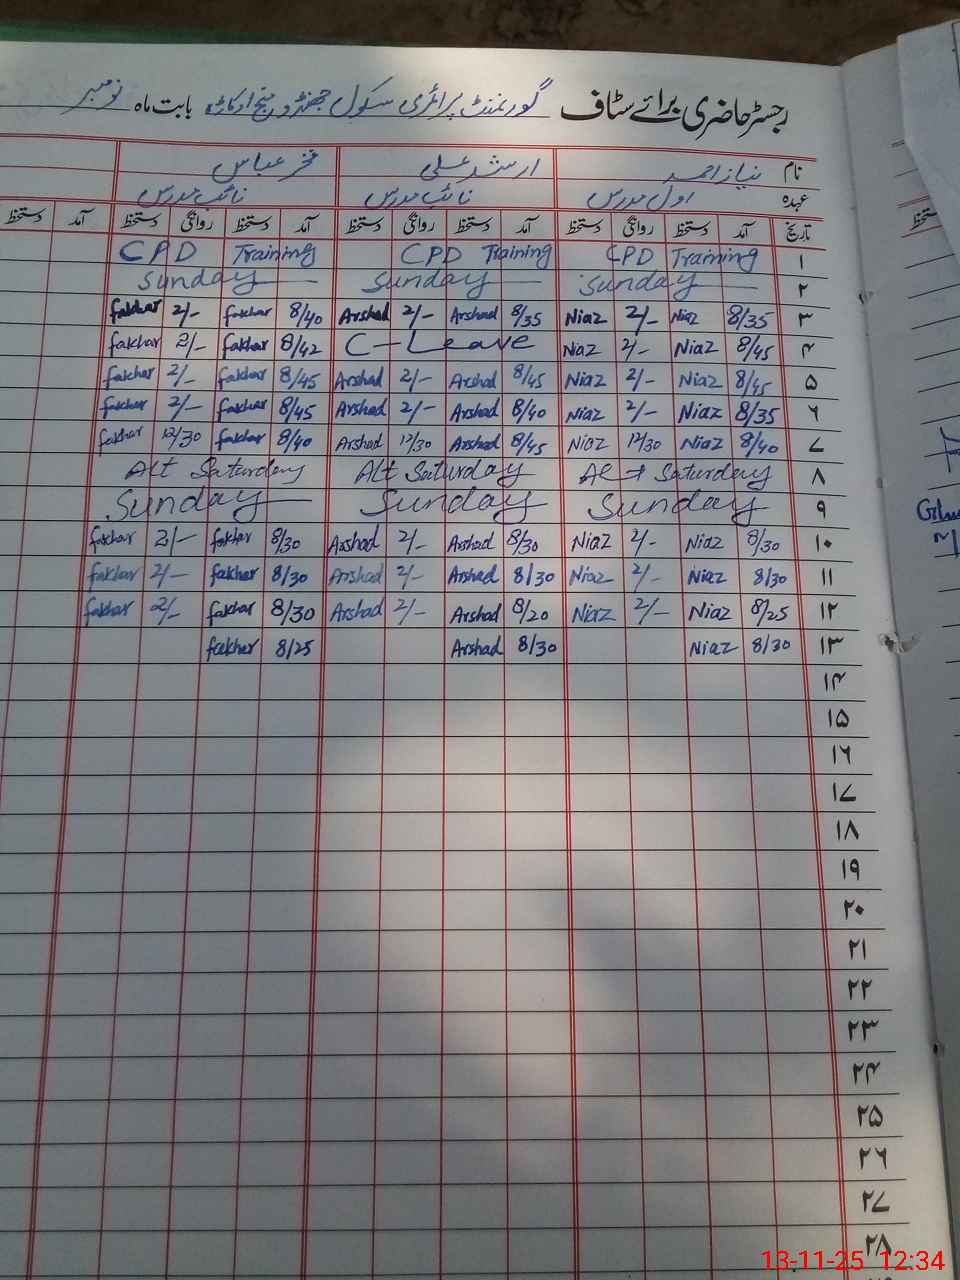 رجسٹر حاضری برائے سٹاف گورنمنٹ پرائمری سکول جھنڈو منج اوکاڑہ بابت ماہ نومبر
نام نیاز احمد ارشد علی فخر عباس
عہدہ اول مدرس نائب مدرس نائب مدرس
تاریخ آمد دستخط روانگی دستخط آمد دستخط روانگی دستخط آمد دستخط روانگی دستخط آمد دستخط
۱ CPD Training CPD Training CPD Training
۲ Sunday Sunday Sunday
۳ 8/35 Niaz 2/- Niaz 8/35 Arshad 2/- Arshad 8/40 fakhar 2/- fakhar
۴ 8/45 Niaz 2/- Niaz C-Leave 8/42 fakhar 2/- fakhar
۵ 8/45 Niaz 2/- Niaz 8/45 Arshad 2/- Arshad 8/45 fakhar 2/- fakhar
۶ 8/35 Niaz 2/- Niaz 8/40 Arshad 2/- Arshad 8/45 fakhar 2/- fakhar
۷ 8/40 Niaz 12/30 Niaz 8/45 Arshad 12/30 Arshad 8/40 fakhar 12/30 fakhar
۸ Alt Saturday Alt Saturday Alt Saturday
۹ Sunday Sunday Sunday
۱۰ 8/30 Niaz 2/- Niaz 8/30 Arshad 2/- Arshad 8/30 fakhar 2/- fakhar
۱۱ 8/30 Niaz 2/- Niaz 8/30 Arshad 2/- Arshad 8/30 fakhar 2/- fakhar
۱۲ 8/25 Niaz 2/- Niaz 8/20 Arshad 2/- Arshad 8/30 fakhar 2/- fakhar
۱۳ 8/30 Niaz 8/30 Arshad 8/25 fakhar
۱۴
۱۵
۱۶
۱۷
۱۸
۱۹
۲۰
۲۱
۲۲
۲۳
۲۴
۲۵
۲۶
۲۷
۲۸
13-11-25 12:34